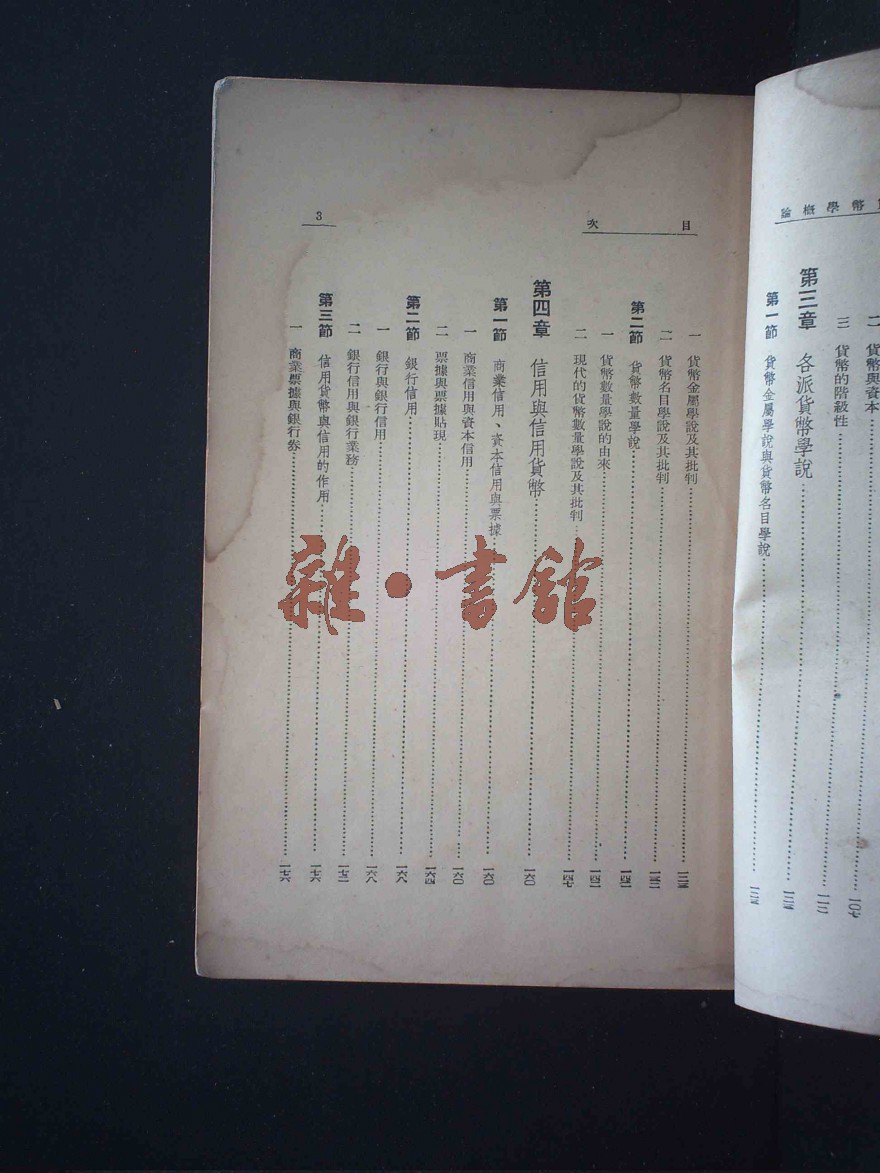 幣學概論
二 貨幣與資本 一〇七
三 貨幣的階級性
第三章 各派貨幣學說
第一節 貨幣金屬學說與貨幣名目學說
目次
一 貨幣金屬學說及其批判
二 貨幣名目學說及其批判
第二節 貨幣數量學說
一 貨幣數量學說的由來
二 現代的貨幣數量學說及其批判 一四七
第四章 信用與信用貨幣 一六〇
第一節 商業信用、資本信用與票據 一六〇
一 商業信用與資本信用 一六〇
二 票據與票據貼現 一六四
第二節 銀行信用 一六八
一 銀行與銀行信用 一六八
二 銀行信用與銀行業務 一七二
第三節 信用貨幣與信用的作用 一七六
一 商業票據與銀行券 一七六
3
雜·書館